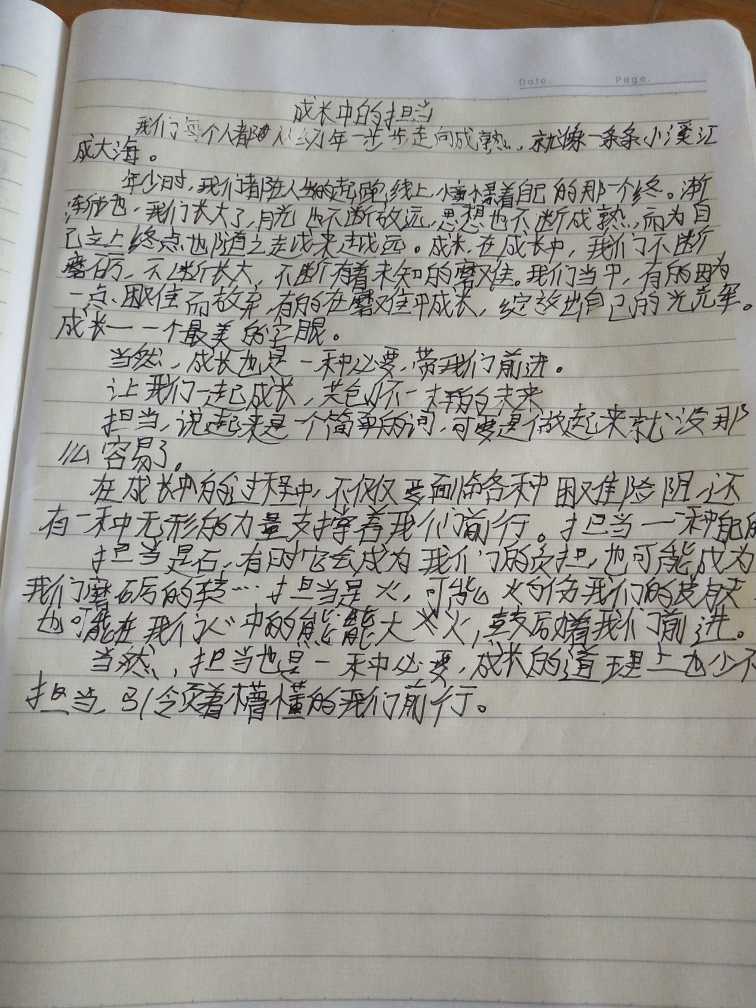 Date. Page.
成长中的担当
我们每个人都从幼年一步步走向成熟，就像一条条小溪汇
成大海。
年少时，我们都在人生的起跑线上，憧憬着自己的那个终。渐
渐地，我们长大了，目光也不断放远，思想也不断成熟，而为自
己立上终点也随之走越来越远。成长，在成长中，我们不断
磨砺，不断长大，不断有着未知的磨难。我们当中，有的因为
一点困难而放弃，有的在磨难中成长，绽放出自己的光
成长一一个最美的
当然，成长也是一种必要，带我们前进。
让我们一起成长，共创不一样的未来
担当，说起来是一个简单的词，可要是做起来就没那
么容易了。
在成长中的过程中，不仅仅要面临各种困难险阻，还
有一种无形的力量支撑着我们前行。担当一一种
担当是石，有时它会成为我们的负担，也可能成为
我们磨砺后的…担当是火，可能灼伤我们的皮肤
也可能在我们心中的熊熊大火，鼓励着我们前进。
当然，担当也是一种必要，成长的道理上也少不
担当，引领着懵懂的我们前行。